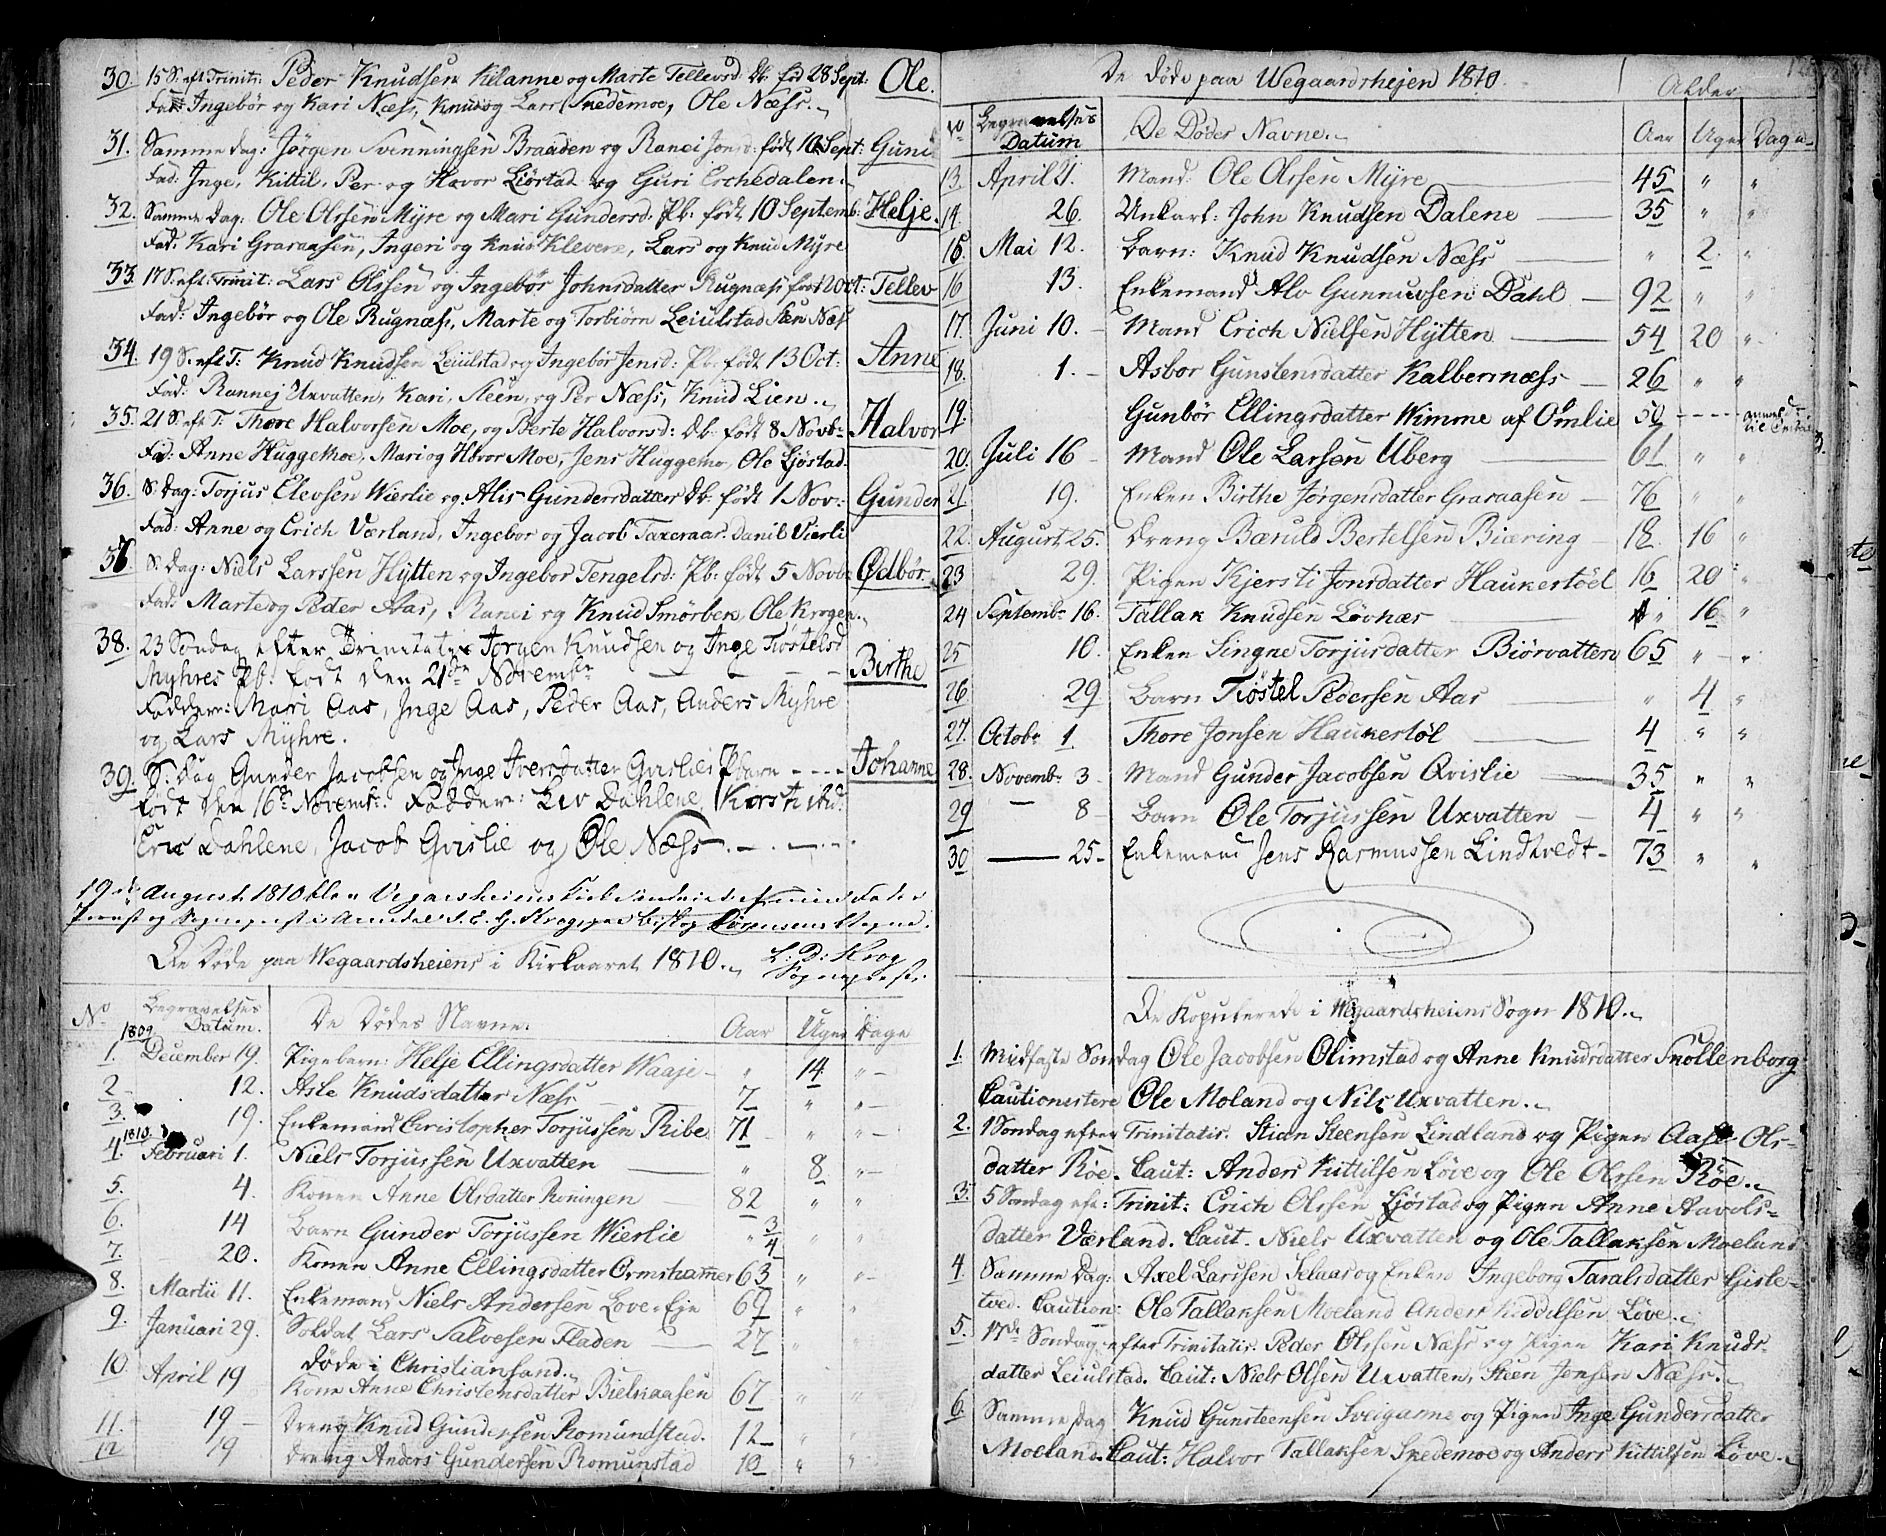 30. 15 S: eft Trinit: Peder Knudsen Kilanne og Marte Tellevsd: Db: fød 28 Sept: Ole.
Fad: Ingebør og Kari Næss, Knud og Lars Skedemoe, Ole Næss.
31. Samme dag: Jørgen Svenningsen Braaden og Ranei Jons: født 10 Sept: Guni
Fad: Inge, Kittil, Per og Havor Liøstad og Guri Erchedalen.
32. Samme Dag: Ole Olssen Myre og Mari Gundersd: Pb: født 10 Septemb: Helje.
Fad: Kari Graraasen, Ingeri og Knud Klevene, Lars og Knud Myre
33. 17 S: eft: Trinit: Lars Olssen og Ingebør Johnsdatter Rugnæss fød 12 Oct: Tellev
Fad: Ingebør og Ole Rugnæss, Marte og Torbiørn Leiulstad Sten Næs
34. 19 S. eft T: Knud Knudsen Leiulstad og Ingebør Jensd: Pb: født 13 Oct: Anne
Fad: Rannej Uxvatten, Kari, Steen, og Per Næss, Knud Lien.
35. 21 S: eft T: Thore Halvorsen Moe, og Berte Halvorsd: Db: født 8 Novb: Halvor
Fad: Anne Huggemoe, Mari og Hovor Moe, Jens Huggemo, Ole Ljøstad.
36. S: Dag: Torjus Elevsen Wierlie og Alis Gundersdatter Db: født 1 Nov: Gunder
Fad: Anne og Erich Værland, Ingebor og Jacob Taxeraas. Danil Vierli
37. S: dag: Niels Larssen Hytten og Ingebor Tengelsd: Pb: født 5 Novb: Ødbør.
Fad: Marte og Peder Aas, Ranei og Knud Smørben, Ole Krogen.
38. 23 Søndag efter Trinitatis Jørgen Knudsen og Inge Tiøstelsd
Myhres Pb: født den 21de Novembr Birthe
Faddere: Mari Aas, Inge Aas, Peder Aas, Anders Myhre
og Lars Myhre.
39. S: Dag Gunder Jacobsen og Inge Iversdatter Gvislies Pbarn Johanne
født den 16de Novemb: Faddere: Liv Dahlene, Kirsti ibid.
Eric Dahlene, Jacob Gvislie og Ole Næss.
19de August 1810 blev Vegarsheiens Kirke indviet af min Fader
Provst og Sognepræst i Arendal S. E. H. Krog, paa Biskop Sørensens Vegne.
De Døde paa Wegaardsheiens i Kirkaaret 1810. L: D: Krog
Sognepræst:
No Begravelses Datum. De Dødes Navne. Aar Uger Dage
1809
1. December 19. Pigebarn: Helje Ellingsdatter Waaje " 14 "
2 12. Asle Knudsdatter Næss 7 " "
3. 19. Enkemand Christopher Torjussen Ribe 71 " "
1810.
4. Februari 1. Niels Torjussen Uxvatten " 8 "
5. 4. Konen Anne Olsdatter Roningen 82 " "
6. 14 Barn Gunder Torjussen Wierlie " 3/4 " "
7. 20. Konen Anne Ellingsdatter Ormshammer 63 " "
8. Martii 11. Enkemand Niels Andersen Løve-Eje 69 " "
9. Januari 29. Soldat Lars Salvesen Fladen 27 "
døde i Christiansand.
10. April 19 Kone Anne Christensdatter Bielkaasen 67 " "
11. 19 Dreng Knud Gundersen Romundstad. 12 "
12 19 Dreng Anders Gundersen Romunstad 10 " "
De døde paa Wegaardshejen 1810.
Alder
No Begravelses Datum De Dødes Navne. Aar Uger Dage
13. April 21. Mand: Ole Olsen Myre 45 " "
14. 26. Unkarl: John Knudsen Dalene 35 " "
15. Mai 12. Barn: Knud Knudsen Næss " 2 "
16 13. Enkemand Alv Gunnuvsen Dahl 92 " "
17. Juni 10. Mand Erich Nielsen Hytten 54 20 "
18. 1. Asbor Gunstensdatter Kalbernæss 26 " "
19. Gunbør Ellingsdatter Wimme af Omlie 50
20. Juli 16 Mand Ole Larsen Uberg 61 " "
21. 19. Enken Birthe Jørgensdatter Graraasen 76 " "
22. August 25. Dreng Bæruld Bertelsen Biæring 18. 16 "
23 29. Pigen Kjersti Jonsdatter Haukertøel 16 20 "
24 Septembr 16. Tallak Knudsen Løvnæs " 16 "
25 10. Enken Singne Torjusdatter Biørvatten 65 " "
26 29 Barn Tiøstel Pedersen Aas " 4 "
27. Octobr 1. Thore Jonsen Haukertøl 4 " "
28. Novembr 3 Mand Gunder Jacobsen Qvislie 35 " "
29 8 Barn Ole Torjussen Uxvatten 4 " "
30 25 Enkemand Jens Rasmussen Lindtvedt 73 " "
De Kopulerede i Wegaardsheiens Sogn 1810.
1. Midfaste Søndag Ole Jacobsen Olimstad og Anne Knudsdatter Snollenborg
Cautionistere Ole Moland og Nils Uxvatten.
2. 1 Søndag efter Trinitatis. Stian Steensen Lindland og Pigen Aase Ols-
datter Røe. Caut: Anders Kittilsen Løve og Ole Olssen Røe.
3. 5 Søndag eft: Trinit: Erich Olssen Ljøstad og Pigen Anne Aavols-
datter Værland. Caut. Niels Uxvatten og Ole Tallaksen Moeland
4. Samme Dag: Axel Larssen Selaas og Enken Ingeborg Taraldsdatter Giste-
tved. Caution: Ole Tallaksen Moeland Anders Kiddilsen Løve.
5. 17de Søndag efter Trinitatis. Peder Olssen Næss og Pigen Kari Knuds-
datter Leiulstad. Caut: Niels Olsen Uxvatten, Steen Jonsen Næss.
6 Samme Dag Knud Gunsteensen Sveiganne og Pigen Inge Gundersdatter
Moeland. Caut: Halvor Tallaksen Skedemoe og Anders Kittilsen Løve.